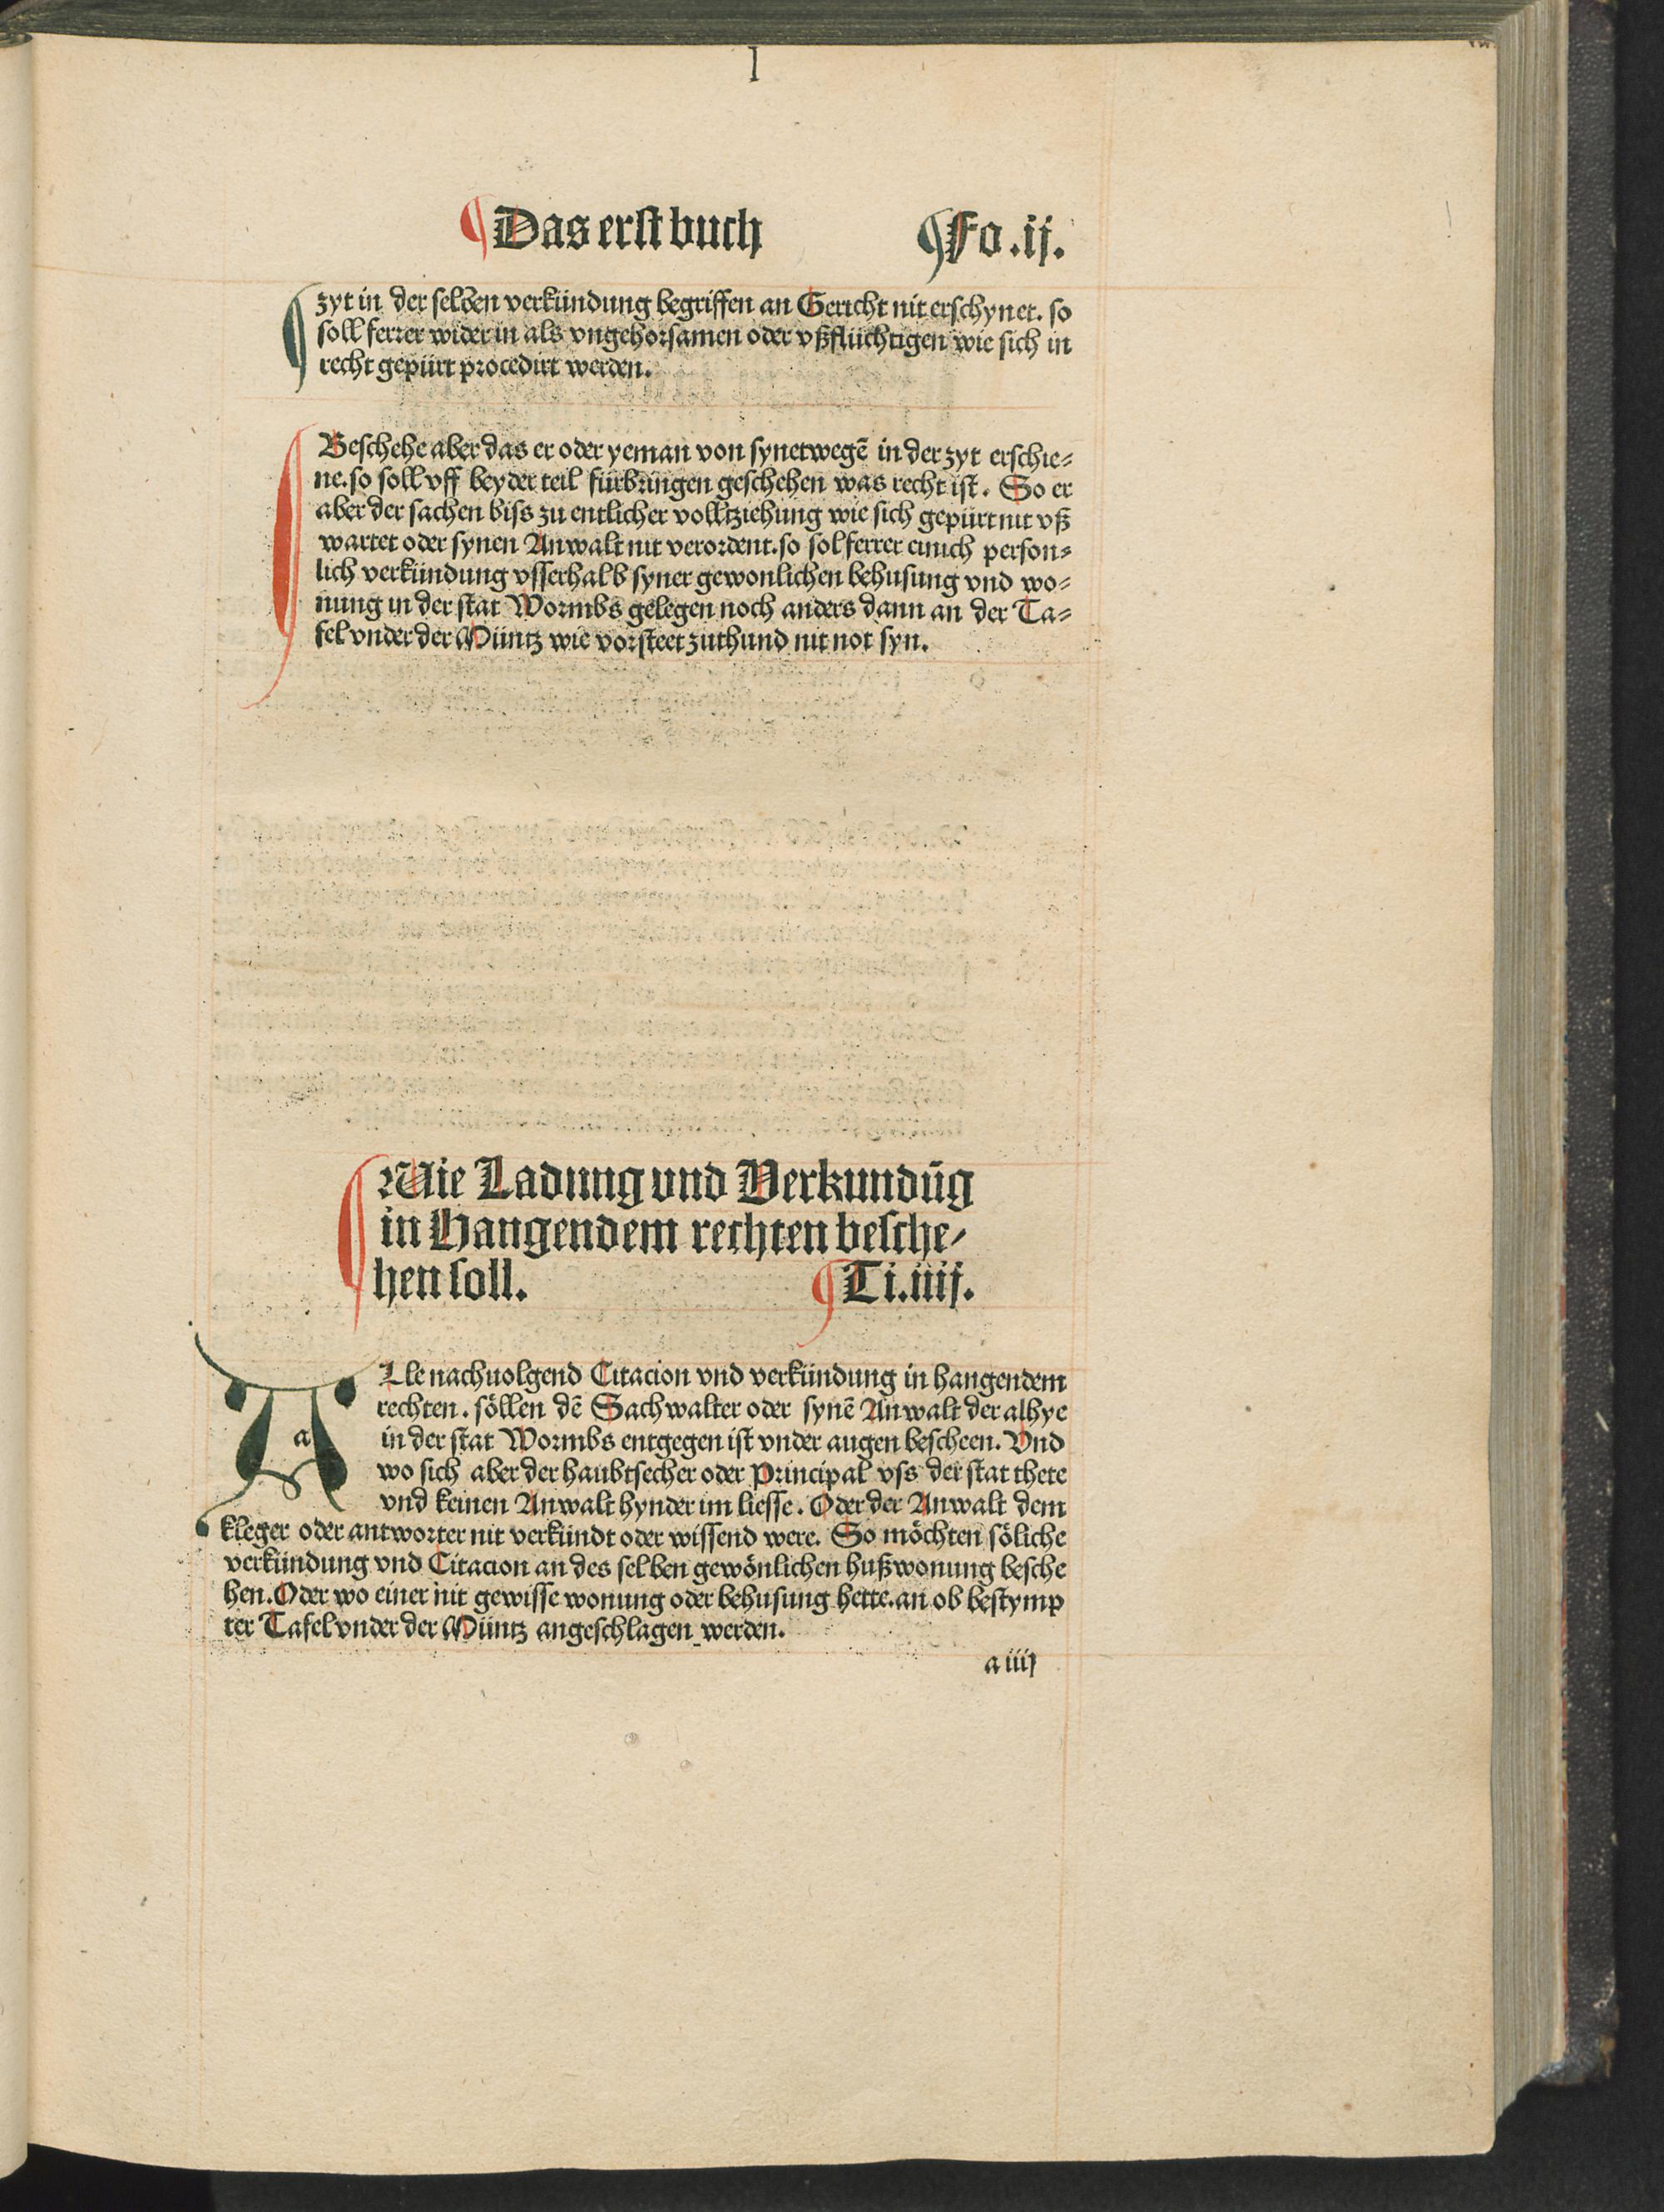 Das erst buch Fo .ij.
zyt in der selben verkündung begriffen an Gericht nit erschynet. so
soll ferrer wider in als vngehorsamen oder vßflüchtigen wie sich in
recht gepürt procedirt werden.
Beschehe aber das er oder yeman von synetwegē in der zyt erschie⸗
ne. so soll vff beyder teil fürbringen geschehen was recht ist. So er
aber der sachen biss zu entlicher volltziehung wie sich gepürt nit vß
wartet oder synen Anwalt nit verordent. so sol ferrer einich person⸗
lich verkündung vsserhalb syner gewonlichen behusung vnd wo⸗
nung in der stat Wormbs gelegen noch anders dann an der Ta⸗
fel vnder der Müntz wie vorsteet zuthund nit not syn.
Wie Ladung vnd Verkundūg
in Hangendem rechten besche⸗
hen soll. Ti.iiij.
ALle nachuolgend Citacion vnd verkündung in hangendem
rechten. söllen dē Sachwalter oder synē Anwalt der alhye
in der stat Wormbs entgegen ist vnder augen bescheen. Vnd
wo sich aber der haubtsecher oder Principal vss der stat thete
vnd keinen Anwalt hynder im liesse. Oder der Anwalt dem
kleger oder antworter nit verkündt oder wissend were. So möchten söliche
verkündung vnd Citacion an des selben gewönlichen hußwonung besche
hen. Oder wo einer nit gewisse wonung oder behusung hette. an ob bestymp
ter Tafel vnder der Müntz angeschlagen werden.
a iiij